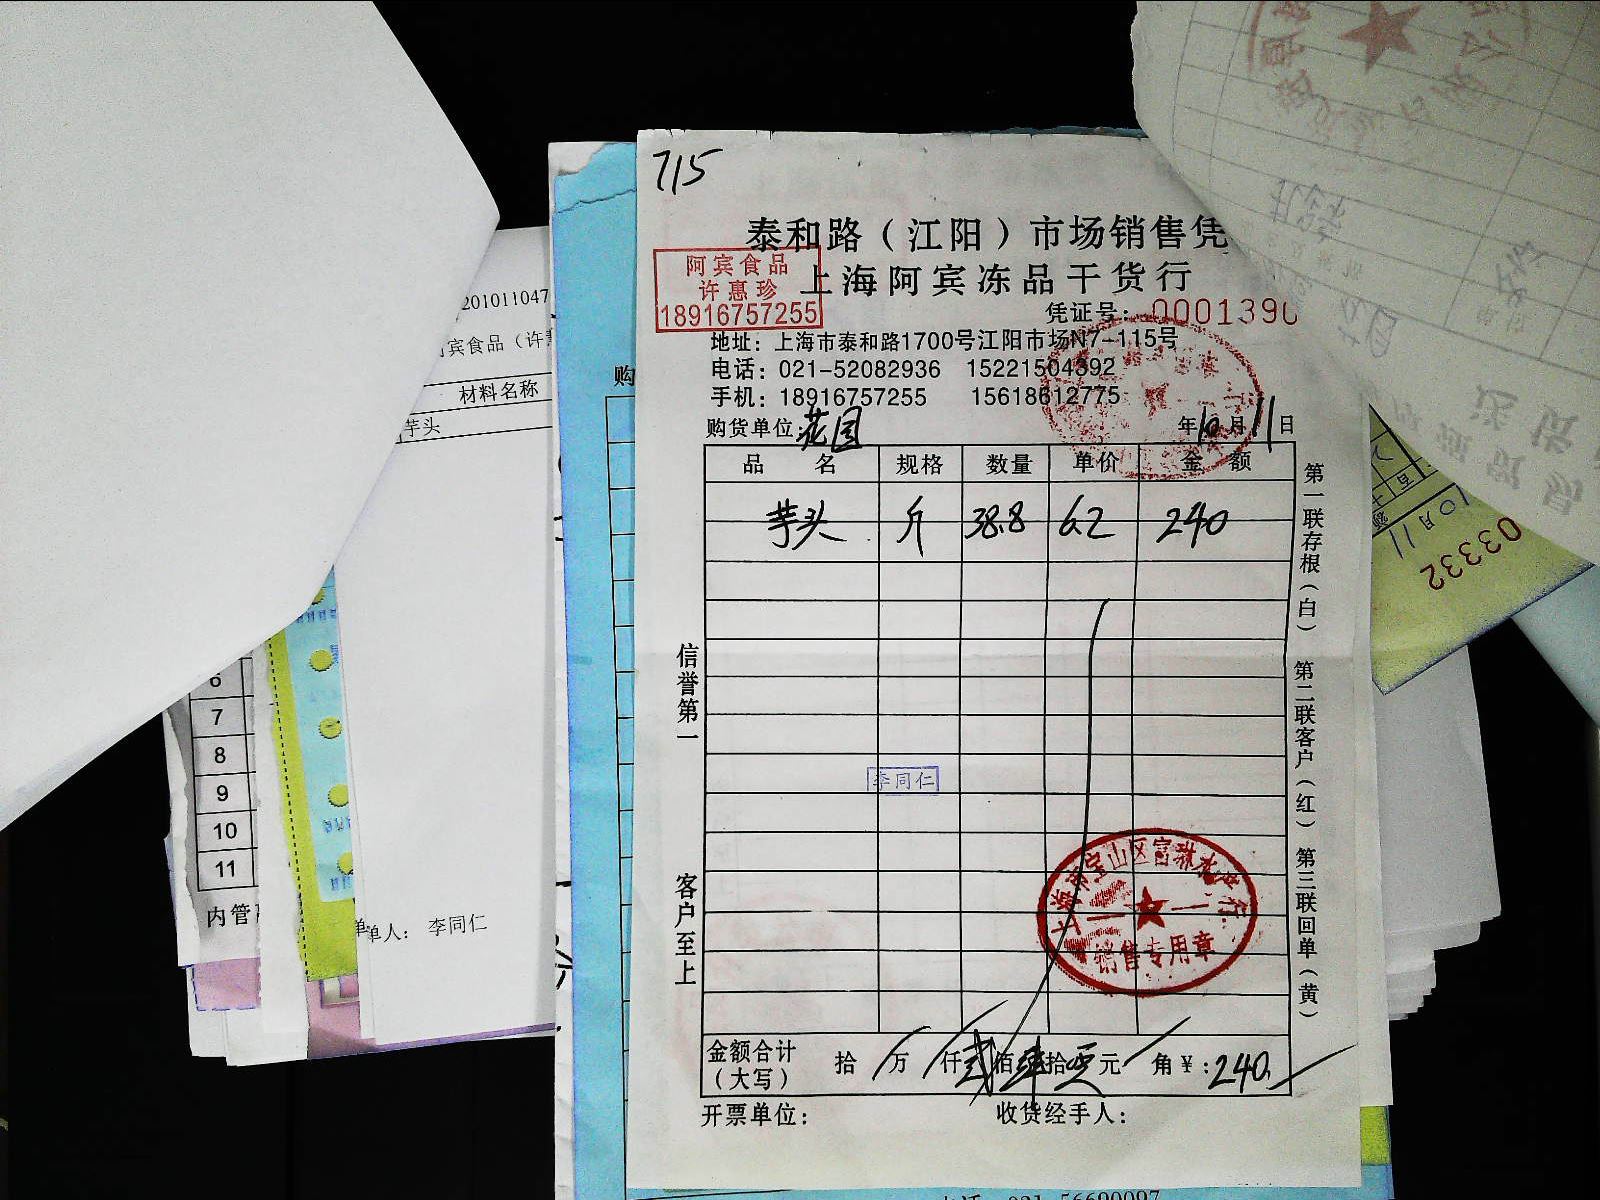 715
泰和路（江阳）市场销售凭
上海阿宾冻品干货行
阿宾食品
许惠珍
18916757255
凭证号：0001390
地址：上海市泰和路1700号江阳市场N7-115号
电话：021-52082936 15221504392
手机：18916757255 15618612775
购货单位：花园 年10月11日
品名 规格 数量 单价 金额
芋头 斤 38.8 6.2 240
信誉第一
客户至上
李同仁
上海市宝山区富琳水产行
销售专用章
金额合计（大写） 拾 万 仟 贰佰肆拾零元 角 ￥：240
开票单位： 收货经手人：
第一联存根（白） 第二联客户（红） 第三联回单（黄）
201011047
宾食品（许
材料名称
芋头
单人： 李同仁
购
6
7
8
9
10
11
内管
10月11
03332